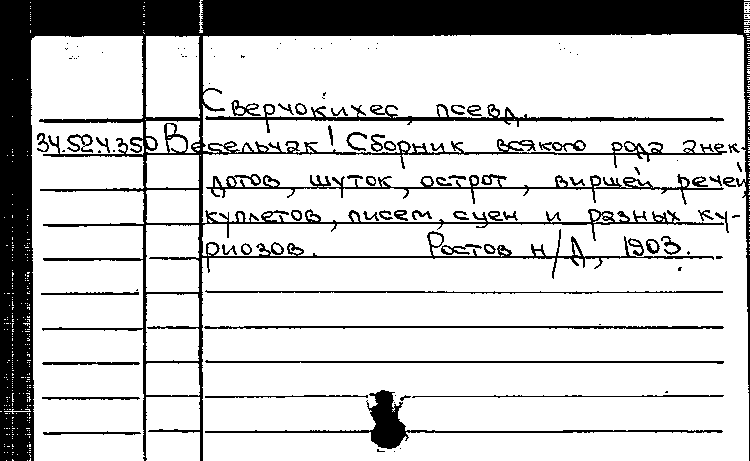 Сверчокихес, псевд.
34.52.4.350 Весельчак! Сборник всякого рода анек-
дотов, шуток, острот, виршей, речей,
куплетов, писем, сцен и разных ку-
риозов. Ростов н/Д, 1903.